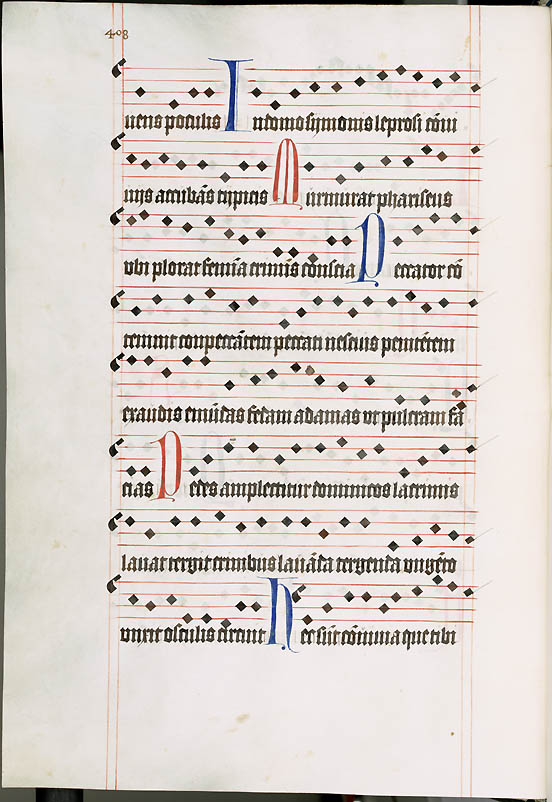 408
uens poculis In domo symonis leprosi cōui
uijs accubās typicis Murmurat phariseus
vbi plorat femīa crimīs conscia Peccator cō
temnit conpeccātem peccati nescius penitētem
exaudis emūdas fedam adamas vt pulcram fa
cias Pedes amplectitur dominicos lacrimis
lauat tergit crinibus lauāda tergenda vngēto
vnxit osculis circuit Hec sūt cōuiuia que tibi